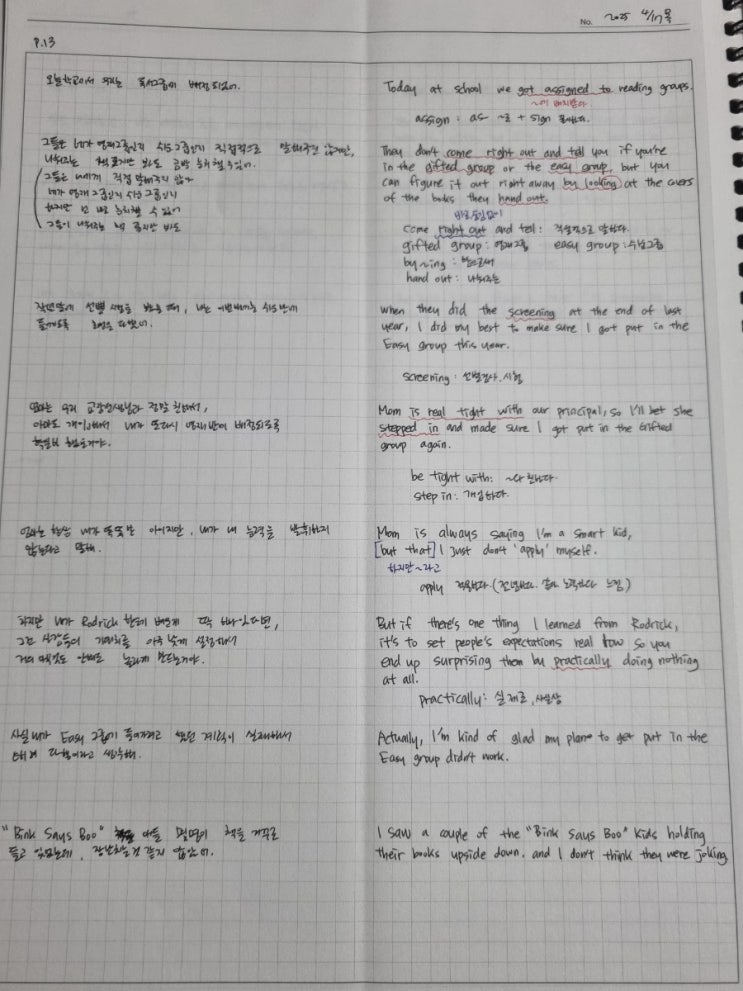 No. 2025 4/17 목
P.13
오늘 학교에서 우리는 독서그룹에 배정되었어.
Today at school we got assigned to reading groups.
~에 배치받다
assign : as ~로 + sign
그들은 네가 영재그룹인지 쉬운그룹인지 직접적으로 말해주진 않지만,
나눠주는 책 표지만 봐도 금방 눈치챌 수 있어.
그들은 너에게 직접 말해주지 않아
네가 영재그룹인지 쉬운그룹인지
하지만 넌 바로 눈치챌 수 있어
그들이 나눠주는 책 표지만 봐도
They don't come right out and tell you if you're
in the gifted group or the easy group, but you
can figure it out right away by looking at the covers
of the books they hand out.
바로, 숨김없이
come right out and tell : 직설적으로 말하다.
gifted group : 영재그룹 easy group : 수준그룹
by ~ing : 함으로써
hand out : 나눠주는
작년말에 선별 시험을 봤을 때, 나는 이번해에는 쉬운반에
들어가도록 최선을 다했어.
When they did the screening at the end of last
year, I did my best to make sure I got put in the
Easy group this year.
screening : 선별검사. 시험
엄마는 우리 교장선생님과 정말 친해서,
아마도 개입해서 내가 또다시 영재반에 배정되도록
Mom is real tight with our principal, so I'll bet she
stepped in and made sure I got put in the Gifted
group again.
be tight with : ~과 친하다.
step in : 개입하다.
엄마는 항상 내가 똑똑한 아이지만, 내가 내 능력을 발휘하지
않는다고 말해.
Mom is always saying I'm a smart kid,
[but that] I just don't 'apply' myself.
하지만 ~라고
apply 적용하다. (전념하다. 노력하다 느낌)
하지만 내가 Rodrick 한테 배운게 딱 하나 있다면,
그건 사람들의 기대치를 아주 낮게 설정해서
거의 아무것도 안해도 놀라게 만드는거야.
But if there's one thing I learned from Rodrick,
it's to set people's expectations real low so you
end up surprising them by practically doing nothing
at all.
practically : 실제로, 사실상
사실 내가 Easy 그룹에 들어가려고 했던 계획이 실패해서
다행이라고 생각해.
Actually, I'm kind of glad my plane to get put in the
Easy group didn't work.
"Bink Says Boo" 아이들 몇명이 책을 거꾸로
들고 있었는데, 장난치는것 같지 않았어.
I saw a couple of the "Bink Says Boo" kids holding
their books upside down. and I don't think they were joking.